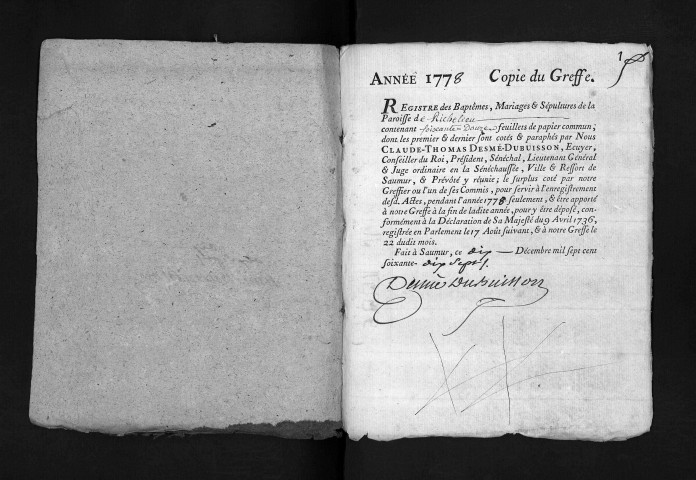 1
ANNÉE 1778 Copie du Greffe.
REGISTRE des Baptêmes, Mariages & Sépultures de la
Paroisse de Richelieu
contenant soixante Douze feuillets de papier commun;
dont les premier & dernier sont cotés & paraphés par Nous
CLAUDE-THOMAS DESMÉ-DUBUISSON, Ecuyer,
Conseiller du Roi, Président, Sénéchal, Lieutenant Général
& Juge ordinaire en la Sénéchaussée, Ville & Ressort de
Saumur, & Prévôté y réunie; le surplus coté par notre
Greffier ou l'un de ses Commis, pour servir à l'enregistrement
desd. Actes, pendant l'année 1778 seulement, & être apporté
à notre Greffe à la fin de ladite année, pour y être déposé, con-
formément à la Déclaration de Sa Majesté du 9 Avril 1736,
registrée en Parlement le 17 Août suivant, & à notre Greffe le
22 dudit mois.
Fait à Saumur, ce dix Décembre mil sept cent
soixante-dix sept.
Desmé Dubuisson